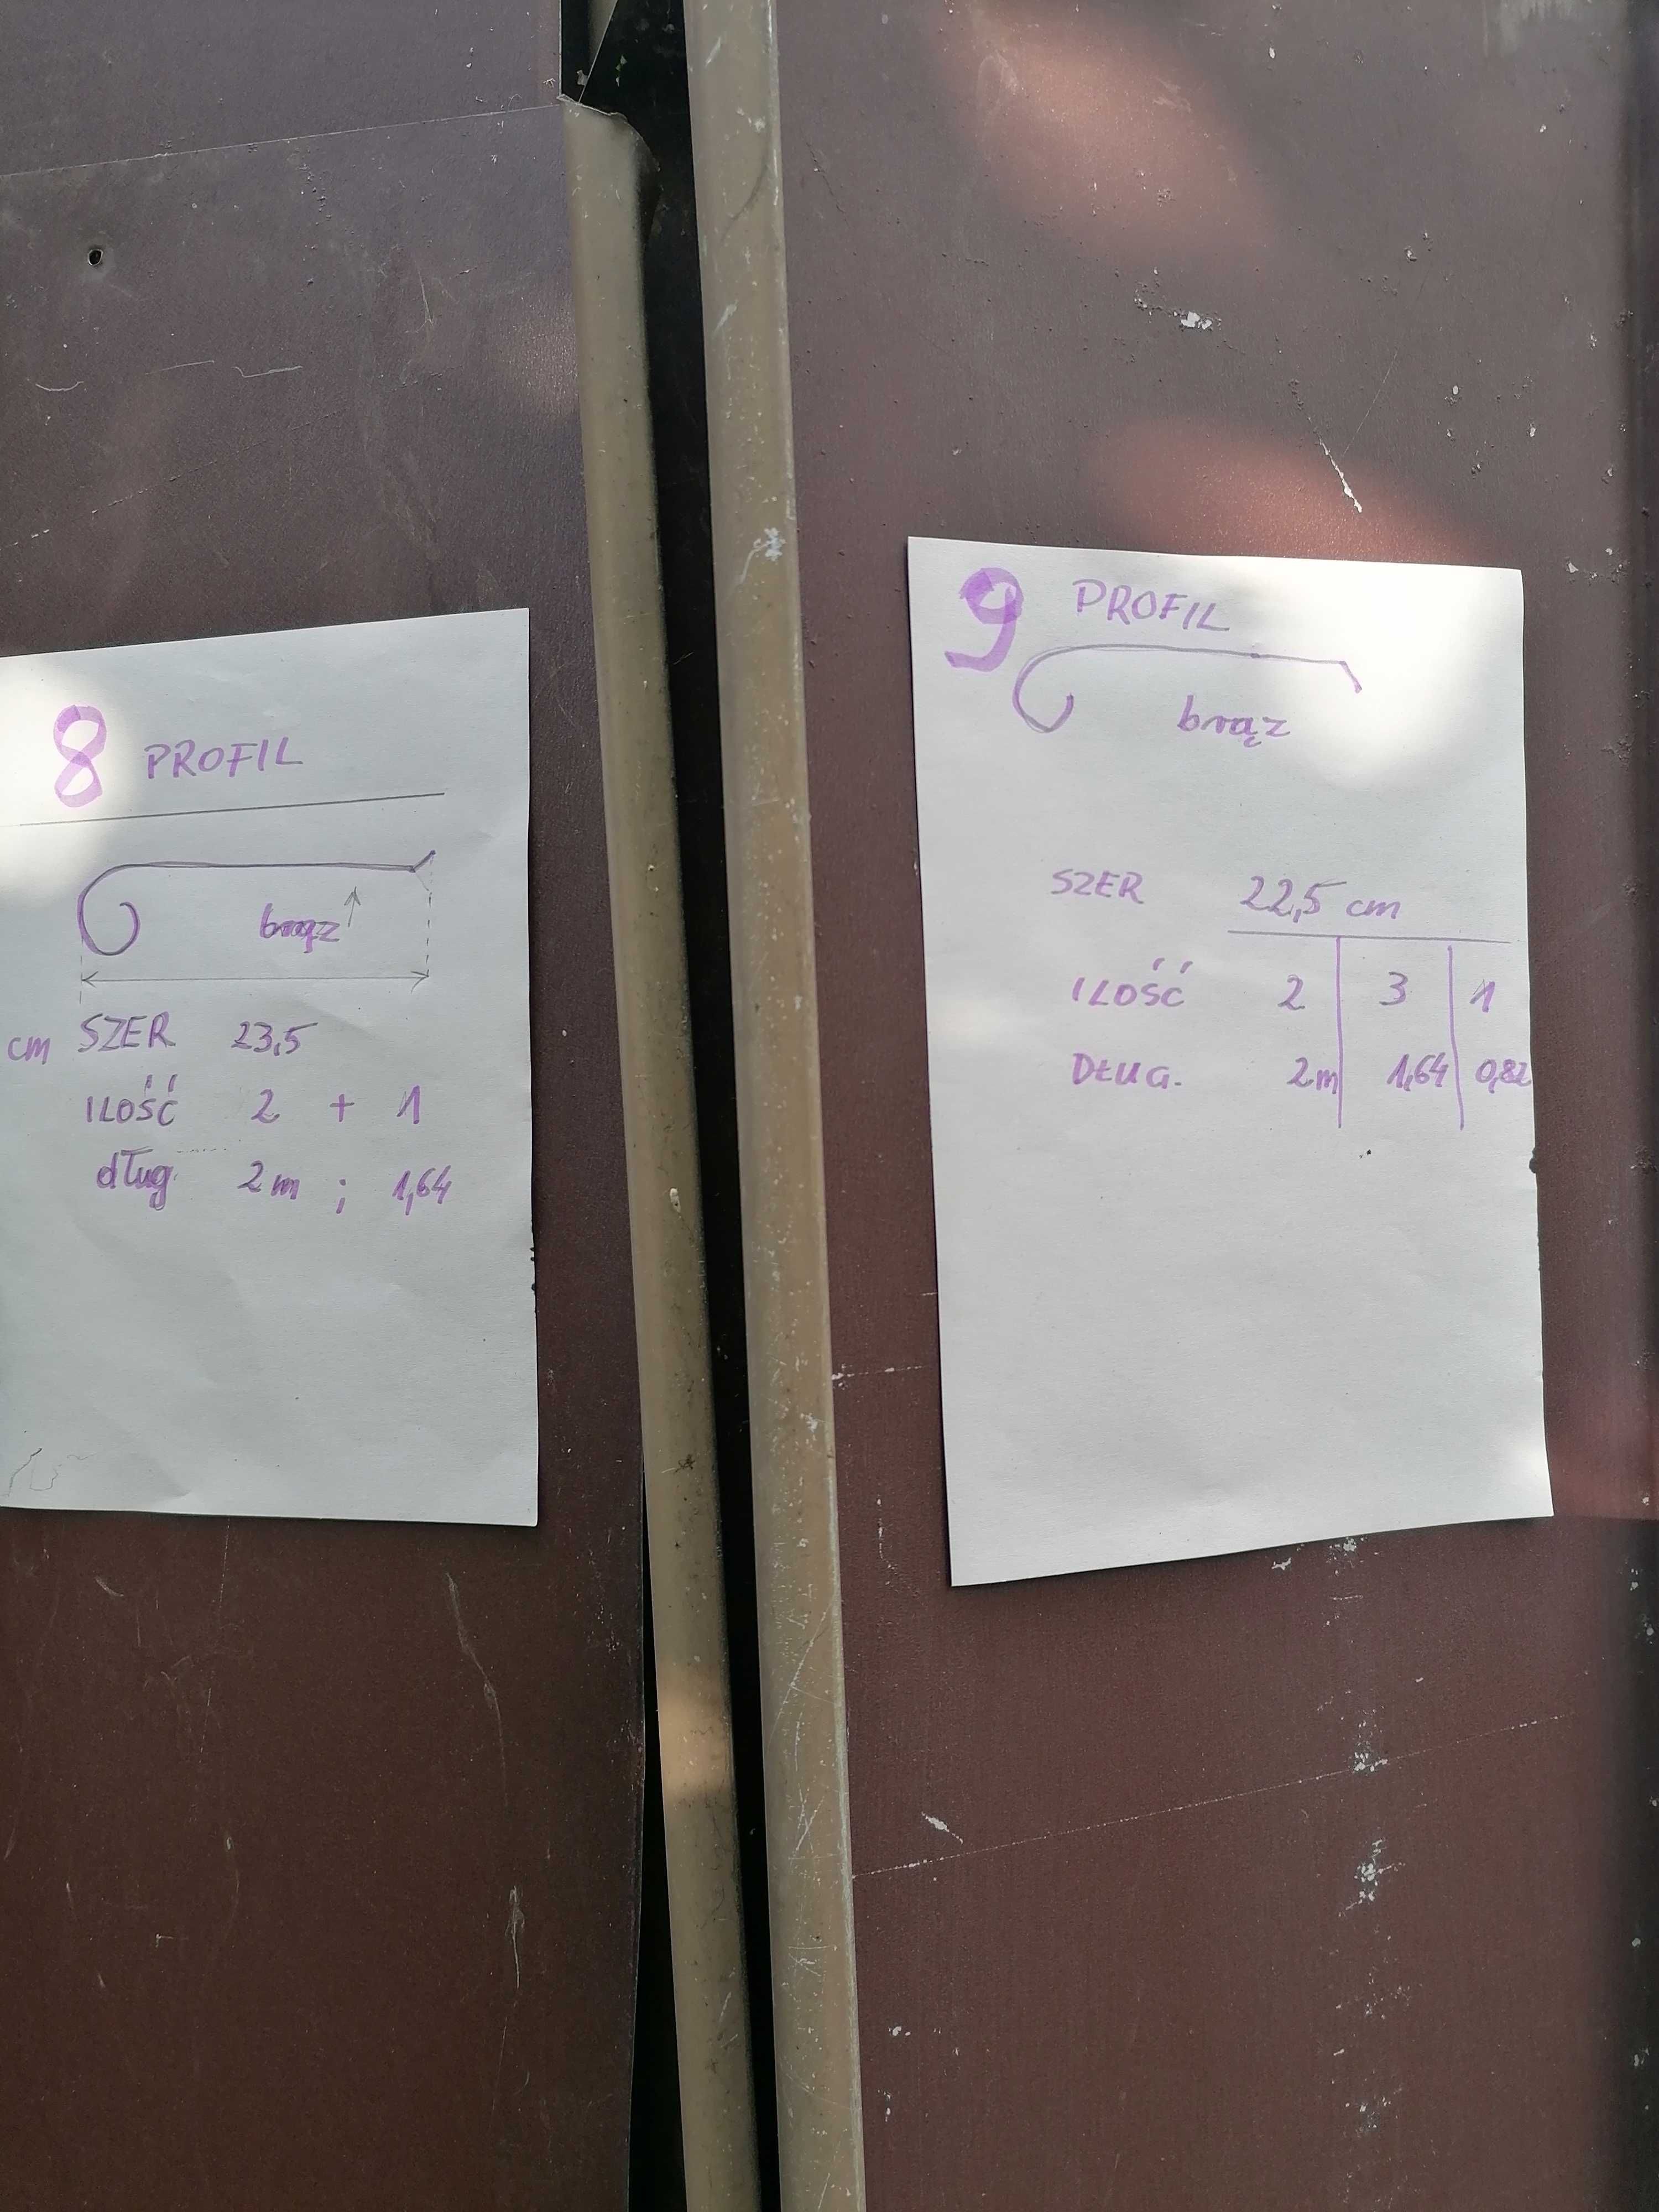 8 PROFIL
brąz
cm SZER 23,5
ILOŚĆ 2 + 1
dług. 2m ; 1,64
9 PROFIL
brąz
SZER 22,5 cm
ILOŚĆ 2 3 1
DŁUG. 2m 1,64 0,82